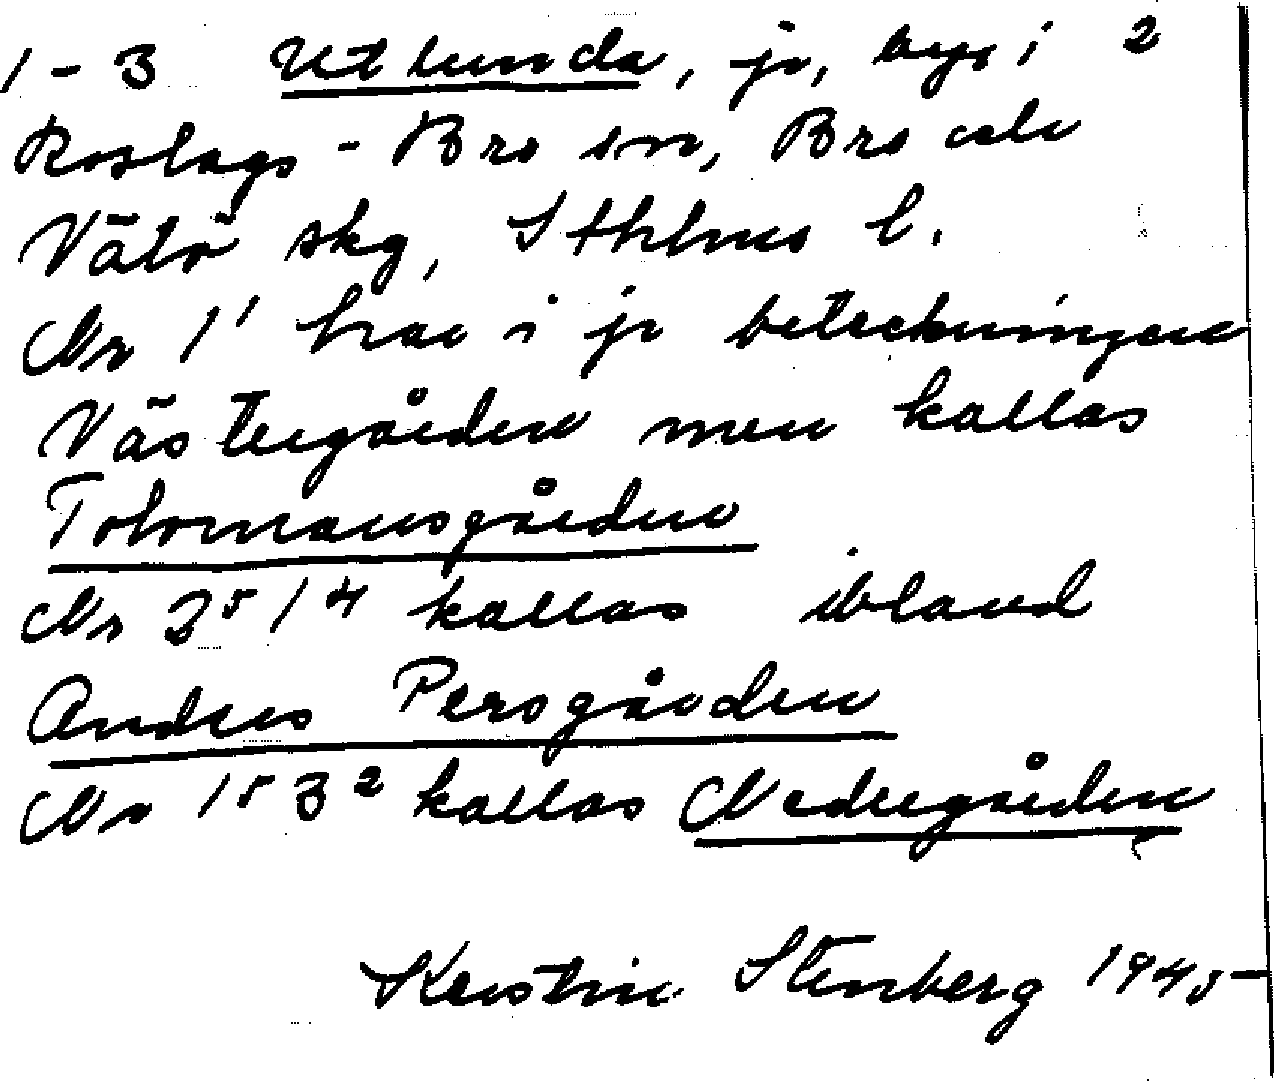 1-3 Utlunda, jr, by i 2
Roslags-Bro sn, Bro och
Vätö skg, Sthlms l.
Nr 1¹ har i jr beteckningen
Västergården men kallas
Tolvmansgården
Nr 2⁵ 1⁴ kallas ibland
Anders Persgården
Nr 1⁵ 3² kallas Nedregården
Kerstin Stenberg 1945